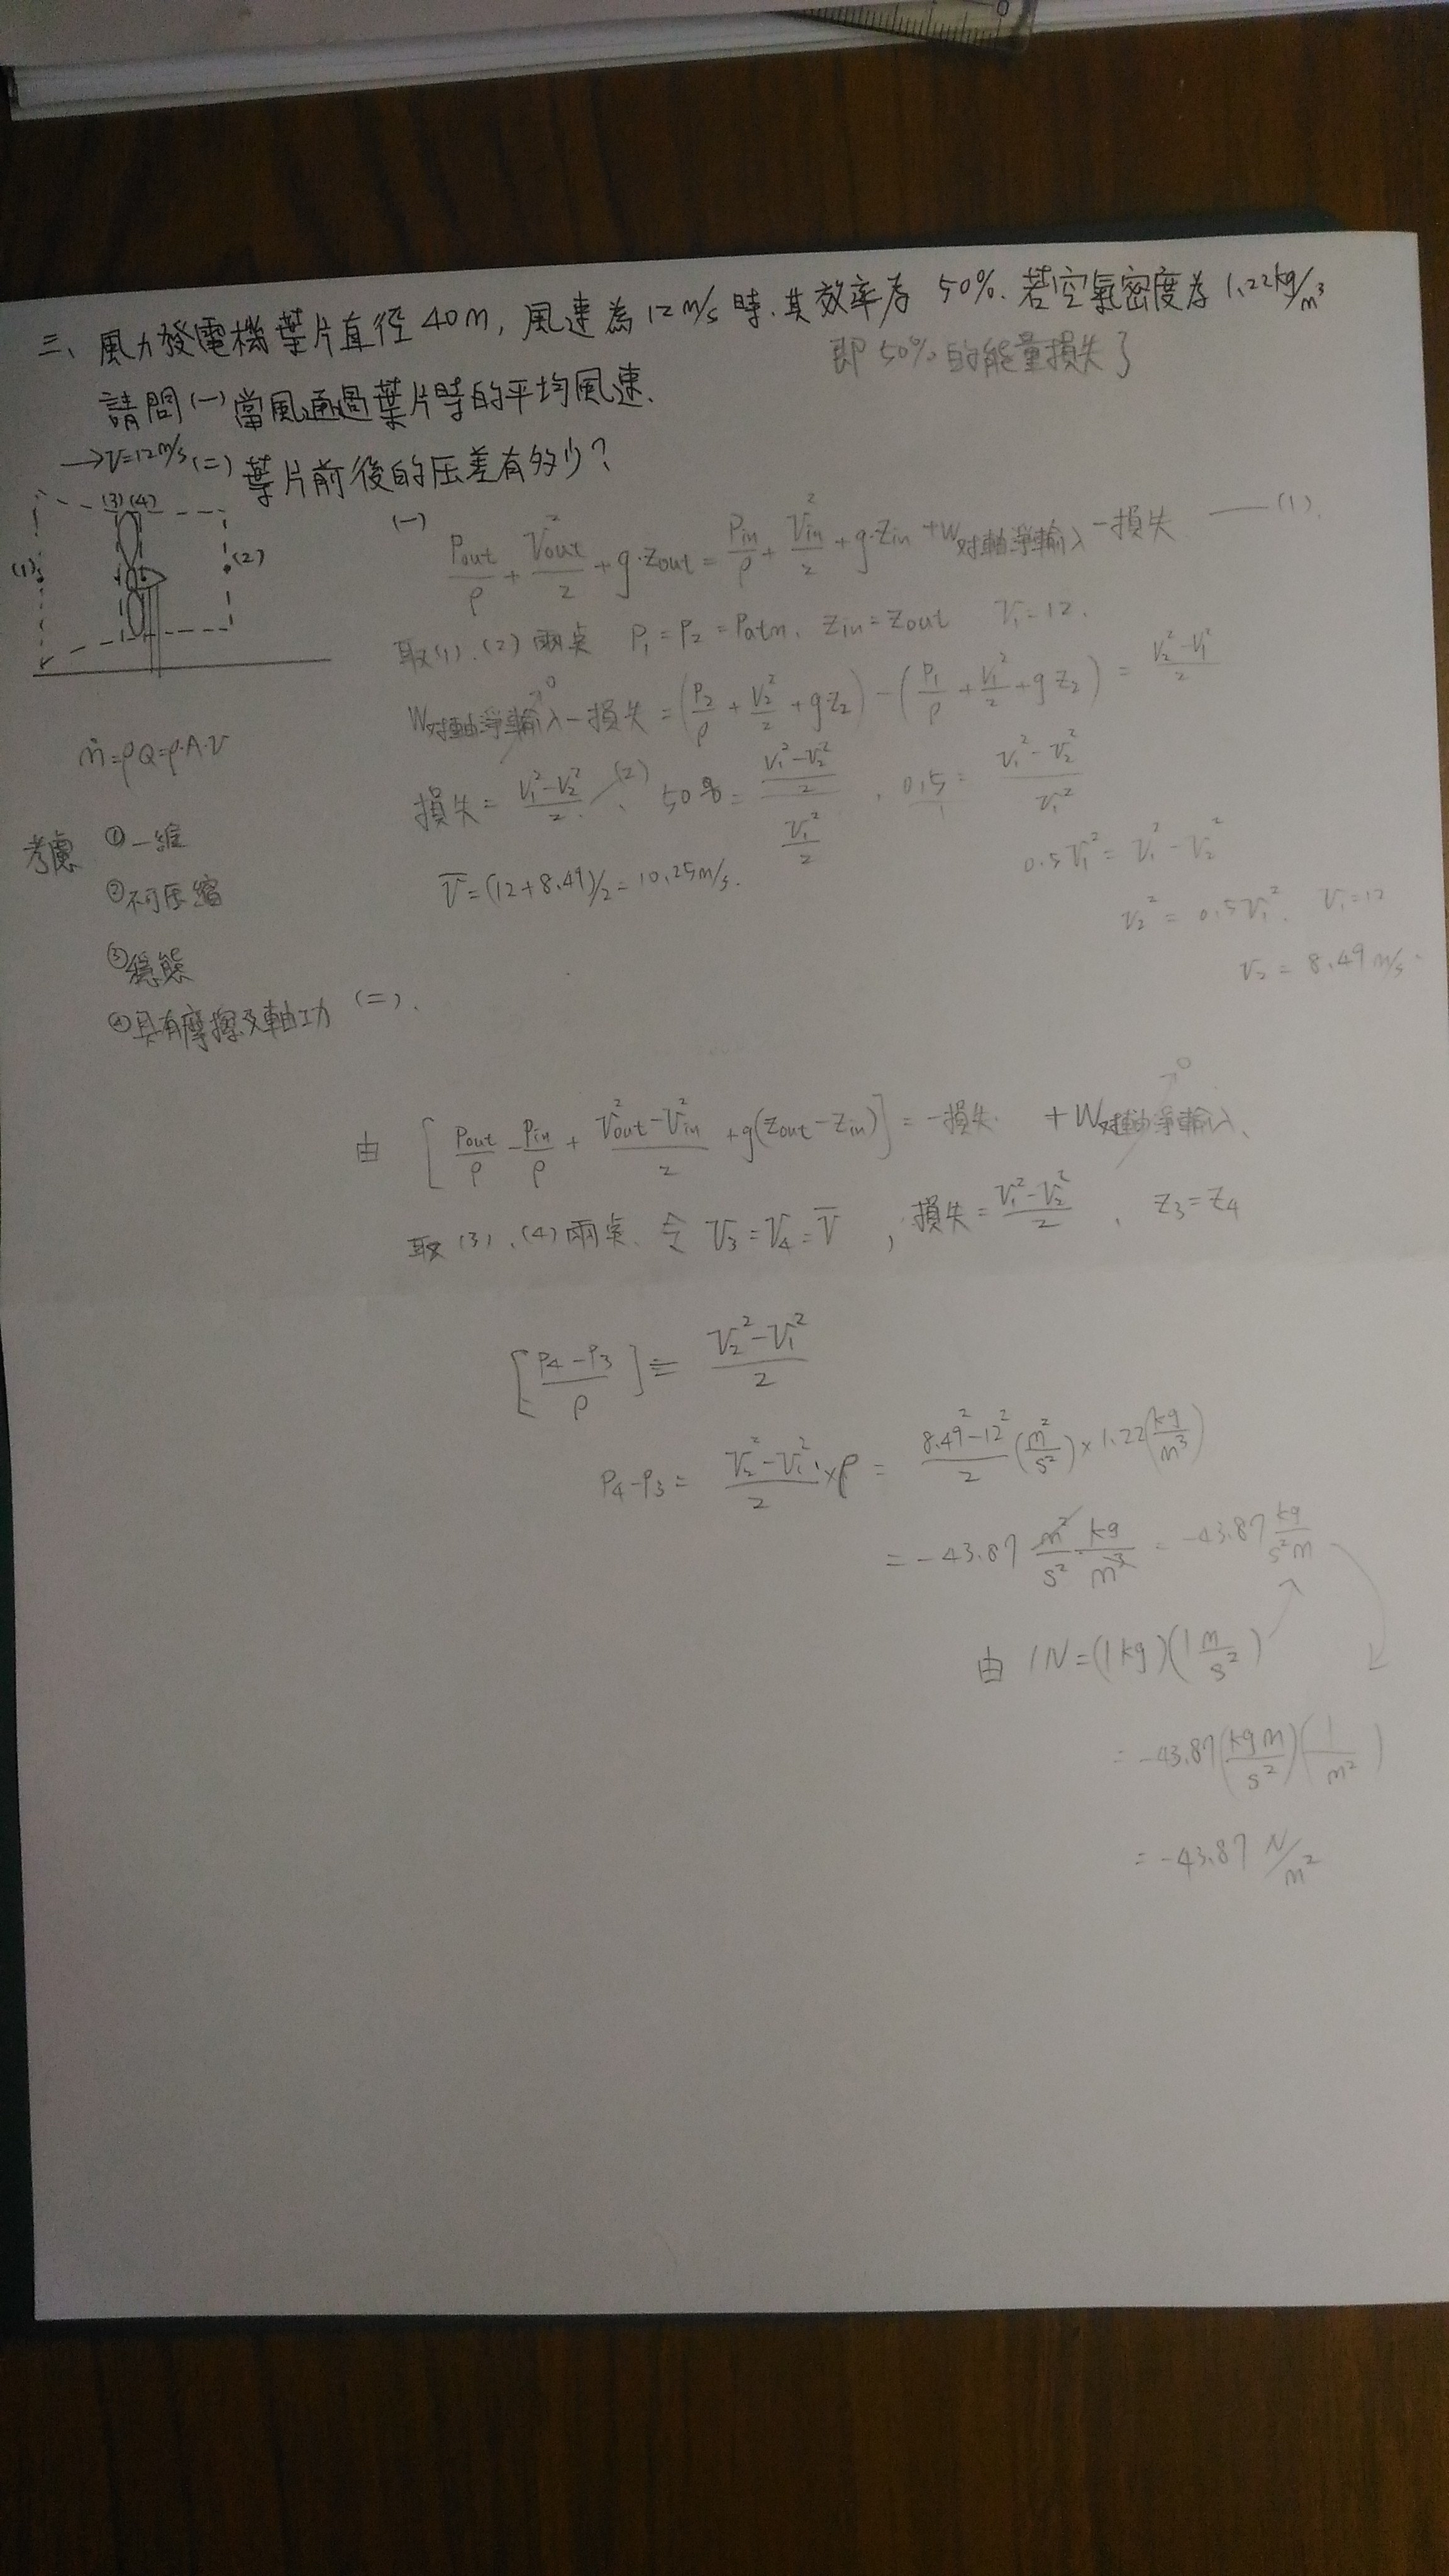 三、風力發電機葉片直徑40m, 風速為12m/s時.其效率為50%.若空氣密度為1.22kg/m³
即50%的能量損失了
請問(一)當風通過葉片時的平均風速.
(二)葉片前後的压差有多少?
→V=12m/s
(3)(4)
(1)
(2)
(一)
Pout/ρ + Vout²/2 + g·Zout = Pin/ρ + Vin²/2 + g·Zin + W对軸淨輸入 - 損失 —— (1).
取(1).(2)兩点 P₁=P₂=Patm. Zin=Zout V₁=12.
W对軸淨輸入 - 損失 = (P₂/ρ + V₂²/2 + gZ₂) - (P₁/ρ + V₁²/2 + gZ₂) = (V₂²-V₁²)/2
0
ṁ=ρQ=ρ·A·V
損失 = (V₁²-V₂²)/2 (2)、 50% = ((V₁²-V₂²)/2)/(V₁²/2) . 0.5/1 = (V₁²-V₂²)/V₁²
0.5V₁² = V₁²-V₂²
V₂² = 0.5V₁². V₁=12
V₂ = 8.49 m/s.
V̄=(12+8.49)/2=10.25m/s.
考慮 ①一維
②不可压縮
③穩態
④具有摩擦及軸功
(二).
由 [Pout/ρ - Pin/ρ + (Vout²-Vin²)/2 + g(Zout-Zin)] = -損失 + W对軸淨輸入、
0
取(3)、(4)兩点. 令 V₃=V₄=V̄ , 損失=(V₁²-V₂²)/2 , Z₃=Z₄
[(P₄-P₃)/ρ] = (V₂²-V₁²)/2
P₄-P₃ = (V₂²-V₁²)/2 ×ρ = (8.49²-12²)/2 (m²/s²)×1.22(kg/m³)
= -43.87 m²/s² kg/m³ = -43.87 kg/s²m
由 1N=(1kg)(1 m/s²)
= -43.87(kg m/s²)(1/m²)
= -43.87 N/m²